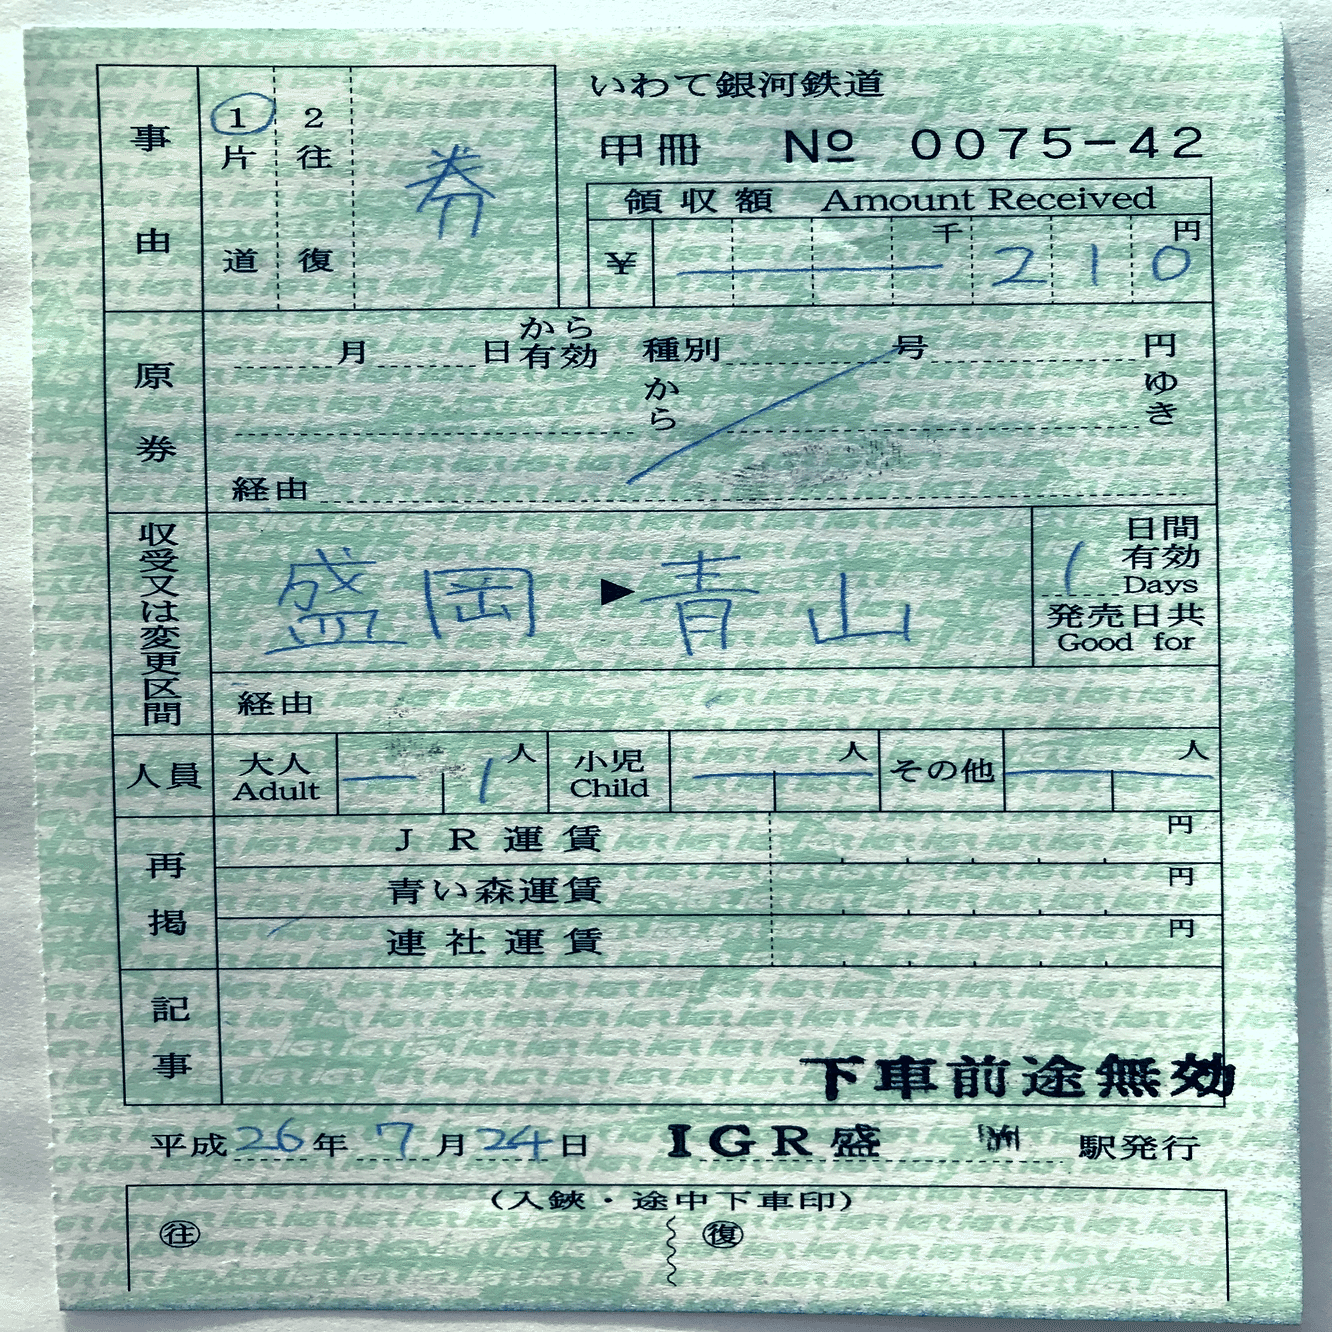 いわて銀河鉄道
甲冊 № 0075-42
事由
1 片道
2 往復
券
領収額 Amount Received
¥ 千 210 円
原券
月 日から有効 種別 号 円
から ゆき
経由
収受又は変更区間
盛岡 ▶ 青山
1 日間有効
Days
発売日共
Good for
経由
人員
大人 Adult 1人
小児 Child 人
その他 人
再掲
JR運賃 円
青い森運賃 円
連社運賃 円
記事
下車前途無効
平成26年7月24日 IGR盛 駅発行
(入鋏・途中下車印)
往 復